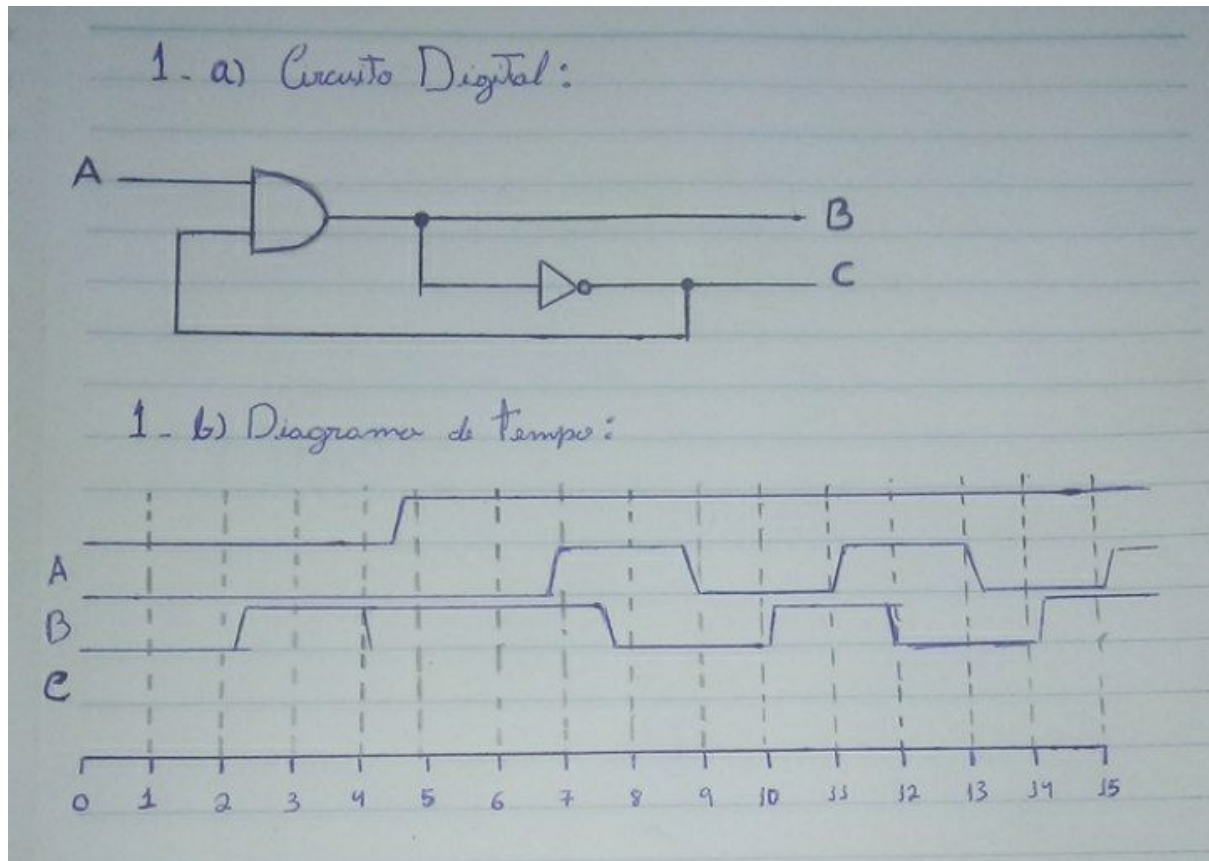 1. a) Circuito Digital:
A
B
C
1 - b) Diagrama de tempo:
A
B
C
0 1 2 3 4 5 6 7 8 9 10 11 12 13 14 15